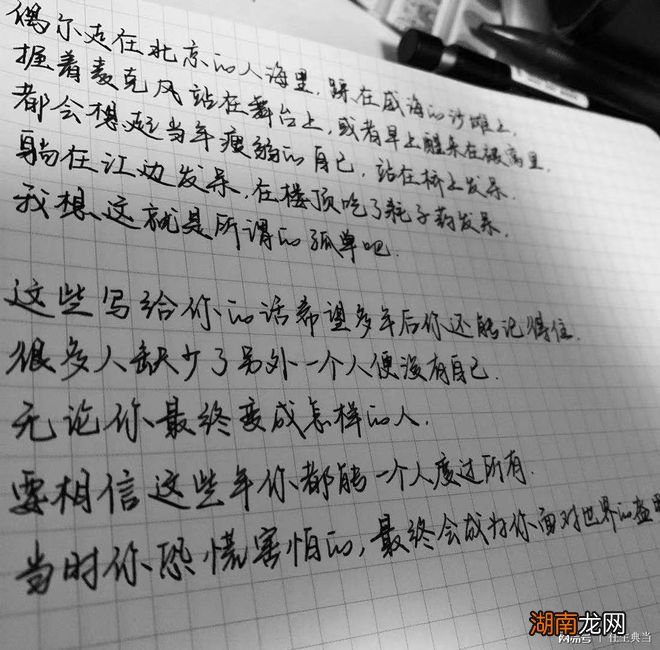 偶尔走在北京的人海里，踩在威海的沙滩上，
握着麦克风站在舞台上，或者早上醒来在被窝里，
都会想起当年瘦弱的自己，站在桥上发呆，
躺在江边发呆，在楼顶吃了耗子药发呆，
我想，这就是所谓的孤单吧。
这些写给你的话希望多年后你还能记得住.
很多人缺少了另外一个人便没有自己.
无论你最终变成怎样的人，
要相信这些年你都能一个人度过所有.
当时你恐慌害怕的，最终会成为你面对世界的盔
湖南龙网
搜狐号